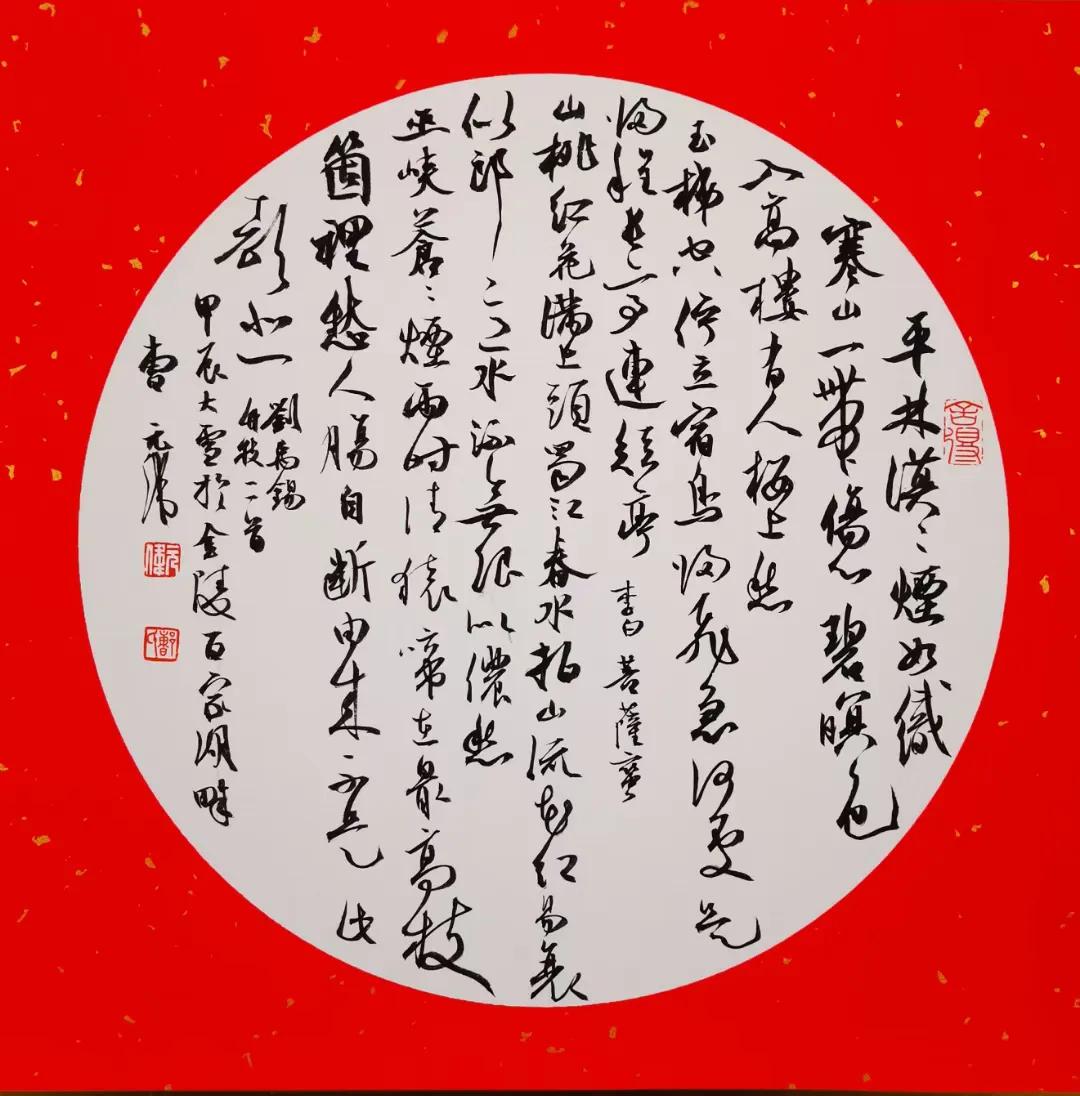 舍得
平林漠〻煙如織
寒山一帶傷心碧暝色
入高樓有人楼上愁
玉梯空佇立宿鳥歸飛急何處是
歸程長亭連短亭 李白菩薩蠻
山桃紅花滿上頭蜀江春水拍山流花紅易衰
似郎意水流無限似儂愁
巫峽蒼〻煙雨時清猿啼在最高枝
箇裡愁人腸自斷由來不是此
聲悲
劉禹錫
竹枝二首
甲辰大雪於金陵百家湖畔
曹元偉
元偉